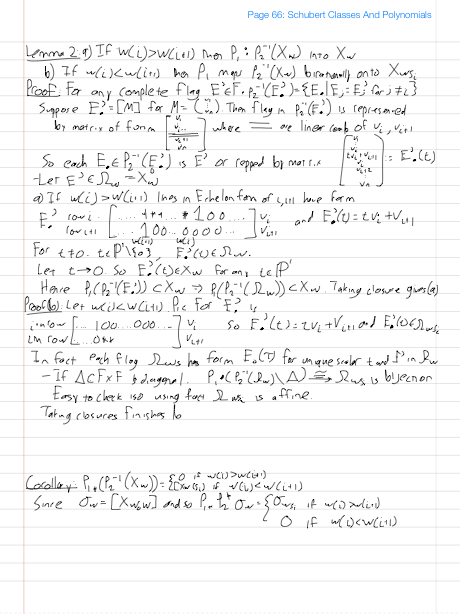 Page 66: Schubert Classes And Polynomials
Lemma 2: a) If w(i)>w(i+1) then P₁ : P₂⁻¹(X_w) into X_w
b) If w(i)<w(i+1) then P₁ maps P₂⁻¹(X_w) birationally onto X_ws_i
Proof: For any complete flag E°. ∈ F, P₂⁻¹(E°.) = {E. | E_j = E°_j for j ≠ i}
Suppose E°. = [M] for M = Then flag in P₂⁻¹(E°.) is represented
by matrix of form where are linear comb of v_i, v_i+1
So each E. ∈ P₂⁻¹(E°.) is E° or repped by matrix := E°.(t)
- Let E° ∈ Ω_w = X°_w
a) If w(i) > w(i+1) lines in Echelon form of i, i+1 have form
E°. row i [ ... * * * ... * 1 0 0 ... ] v_i and E°.(t) = t v_i + v_i+1
row i+1 [ ... 1 0 0 ... 0 0 0 0 ... ] v_i+1
w(i+1) w(i)
For t≠0. t∈P¹\{0}, E°.(t) ∈ Ω_w.
Let t→0. So E°.(t) ∈ X_w for any t∈P¹
Hence P₁(P₂⁻¹(E°.)) ⊂ X_w ⇒ P₁(P₂⁻¹(Ω_w)) ⊂ X_w. Taking closure gives (a)
Proof (b): Let w(i) < w(i+1) Pic for E°. is
i row [ ... 1 0 0 ... 0 0 0 ... ] v_i So E°.(t) := t v_i + v_i+1 and E°.(t) ∈ Ω_ws_i
v_i+1
In fact each flag Ω_ws has form E.(t) for unique scalar t and in Ω_w
- If Δ ⊂ F×F is diagonal. P₁ : (P₂⁻¹(Ω_w) \ Δ) ≅ Ω_ws_i is bijection
Easy to check iso using fact Ω_ws_i is affine.
Taking closures finishes b
Corollary: P₁*(P₂⁻¹(X_w)) = { 0 if w(i)>w(i+1)
if w(i)<w(i+1)
Since σ_w = [X_w₀w] and so P₁* P₂* σ_w = { σ_ws_i if w(i)>w(i+1)
0 if w(i)<w(i+1)